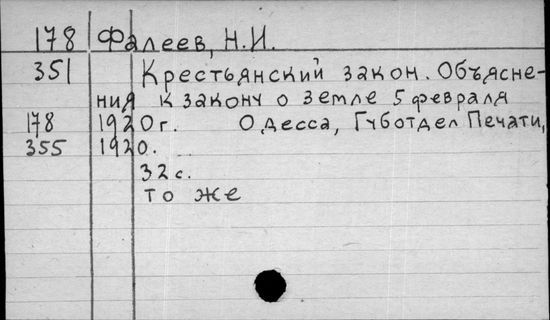 178 Фалеев, Н.И.
351 Крестьянский закон. Объясне-
ния к закону о земле 5 февраля
178 1920г. Одесса, Губотдел Печати,
355 1920.
32с.
то же